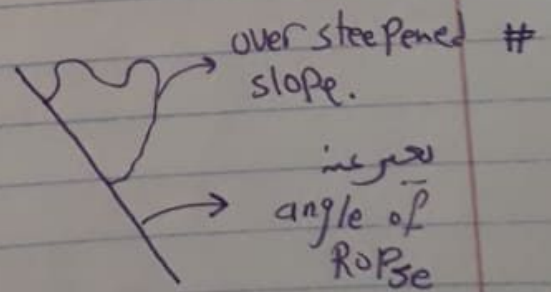 over steepened #
slope.
angle of
Ropse